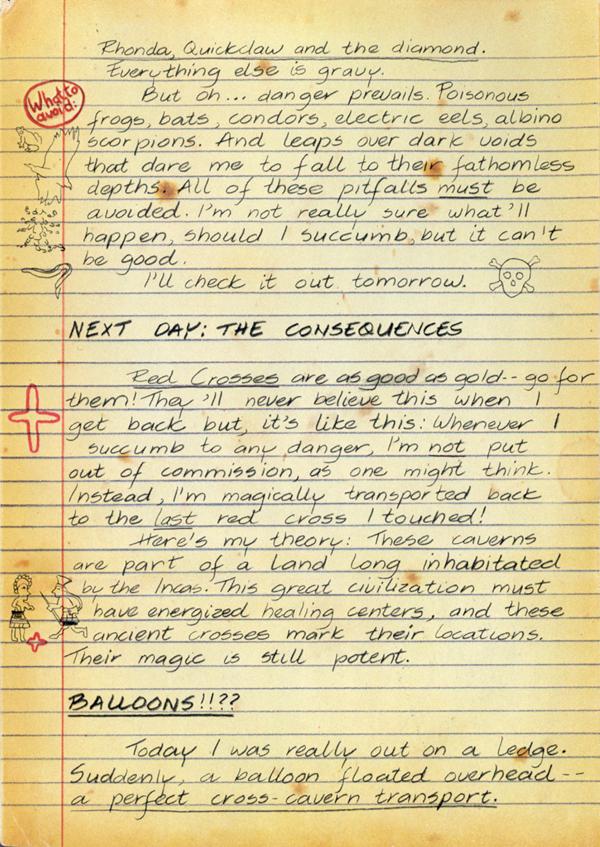 Rhonda, Quickclaw and the diamond.
Everything else is gravy.
What to
avoid:
But oh... danger prevails. Poisonous
frogs, bats, condors, electric eels, albino
scorpions. And leaps over dark voids
that dare me to fall to their fathomless
depths. All of these pitfalls must be
avoided. I'm not really sure what'll
happen, should I succumb, but it can't
be good.
I'll check it out tomorrow.
NEXT DAY: THE CONSEQUENCES
Red Crosses are as good as gold -- go for
them! They'll never believe this when I
get back but, it's like this: Whenever I
succumb to any danger, I'm not put
out of commission, as one might think.
Instead, I'm magically transported back
to the last red cross I touched!
Here's my theory: These caverns
are part of a land long inhabitated
by the Incas. This great civilization must
have energized healing centers, and these
ancient crosses mark their locations.
Their magic is still potent.
BALLOONS!!??
Today I was really out on a ledge.
Suddenly, a balloon floated overhead --
a perfect cross-cavern transport.